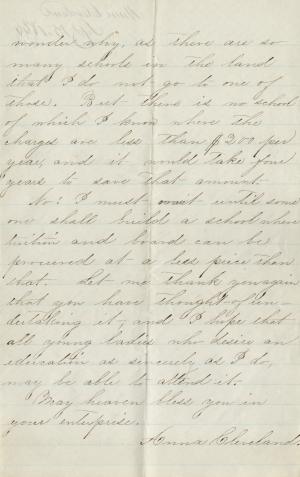 wonder why, as there are so
many schools in the land
that I do not go to one of
those. But there is no school
of which I know where the
charges are less than $200 per
year, and it would take four
years to save that amount.
No! I must wait until some
one shall build a school where
tuition and board can be
procured at a less price than
that. Let me thank you again
that you have thought of un-
dertaking it, and I hope that
all young ladies who desire an
education as sincerely as I do,
may be able to attend it.
May heaven bless you in
your enterprise.
Anna Cleveland.